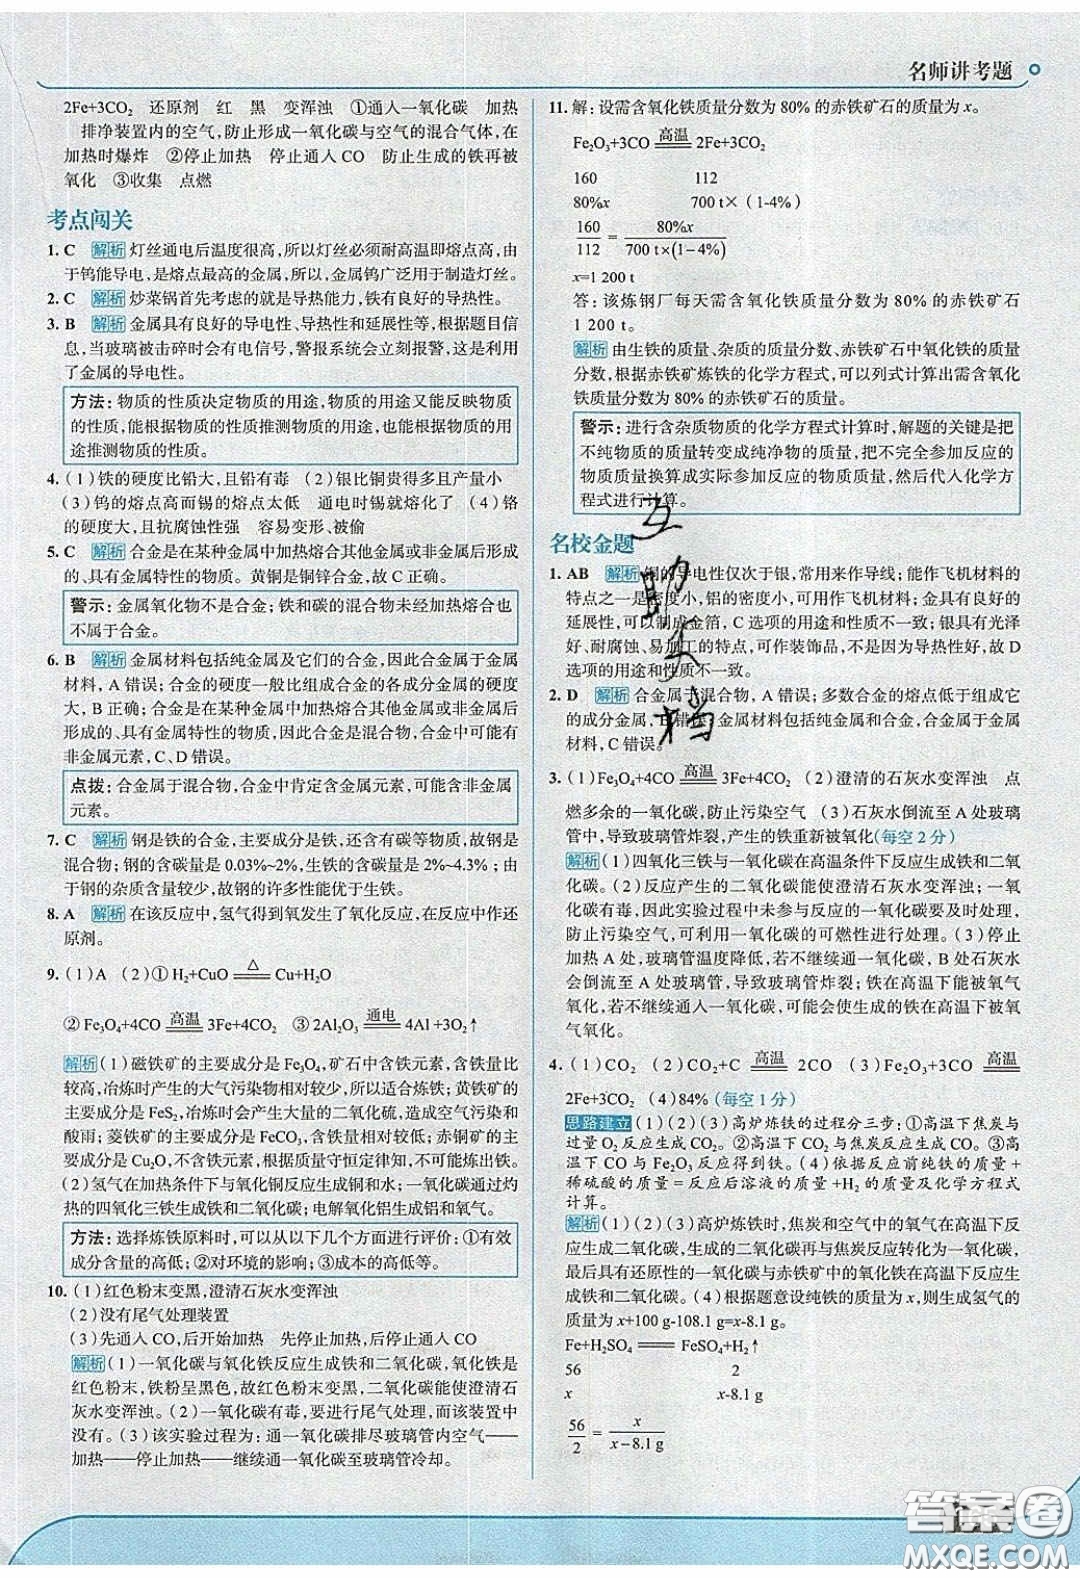 名师讲考题
2Fe+3CO₂ 还原剂 红 黑 变浑浊 ①通入一氧化碳 加热
排净装置内的空气,防止形成一氧化碳与空气的混合气体,在
加热时爆炸 ②停止加热 停止通入CO 防止生成的铁再被
氧化 ③收集 点燃
考点闯关
1. C 解析 灯丝通电后温度很高,所以灯丝必须耐高温即熔点高,由
于钨能导电,是熔点最高的金属,所以,金属钨广泛用于制造灯丝。
2. C 解析 炒菜锅首先考虑的就是导热能力,铁有良好的导热性。
3. B 解析 金属具有良好的导电性、导热性和延展性等,根据题目信
息,当玻璃被击碎时会有电信号,警报系统会立刻报警,这是利用
了金属的导电性。
方法:物质的性质决定物质的用途,物质的用途又能反映物质
的性质,能根据物质的性质推测物质的用途,也能根据物质的用
途推测物质的性质。
4. (1)铁的硬度比铅大,且铅有毒 (2)银比铜贵得多且产量小
(3)钨的熔点高而锡的熔点太低 通电时就熔化了 (4)铬
的硬度大,且抗腐蚀性强 容易变形、被偷
5. C 解析 合金是在某种金属中加热熔合其他金属或非金属后形成
的、具有金属特性的物质。黄铜是铜锌合金,故C正确。
警示:金属氧化物不是合金;铁和碳的混合物未经加热熔合也
不属于合金。
6. B 解析 金属材料包括纯金属及它们的合金,因此合金属于金属
材料,A错误;合金的硬度一般比组成合金的各成分金属的硬度
大,B正确;合金是在某种金属中加热熔合其他金属或非金属形
成的、具有金属特性的物质,因此合金是混合物,合金中可能有
非金属元素,C、D错误。
点拨:合金属于混合物,合金中肯定含金属元素,可能含非金属
元素。
7. C 解析 钢是铁的合金,主要成分是铁,还含有碳等物质,故钢是
混合物;钢的含碳量是0.03%~2%,生铁的含碳量是2%~4.3%;由
于钢的杂质含量较少,故钢的许多性能优于生铁。
8. A 解析 在该反应中,氢气得到氧发生了氧化反应,在反应中作还
原剂。
9. (1)A (2)①H₂+CuO ══△══ Cu+H₂O
②Fe₃O₄+4CO ══高温══ 3Fe+4CO₂ ③2Al₂O₃ ══通电══ 4Al+3O₂↑
解析 (1)磁铁矿的主要成分是Fe₃O₄,矿石中含铁元素,含铁量比
较高,冶炼时产生的大气污染物相对较少,所以适合炼铁;黄铁矿的
主要成分是FeS₂,冶炼时会产生大量的二氧化硫,造成空气污染和
酸雨;菱铁矿的主要成分是FeCO₃,含铁量相对较少;赤铜矿的主要
成分是Cu₂O,不含铁元素,根据质量守恒定律知,不可能炼出铁。
(2)氢气在加热条件下与氧化铜反应生成铜和水;一氧化碳通过灼
热的四氧化三铁生成铁和二氧化碳;电解氧化铝生成铝和氧气。
方法:选择炼铁原料时,可以从以下几个方面进行评价:①有效
成分含量的高低;②对环境的影响;③成本的高低等。
10. (1)红色粉末变黑,澄清石灰水变浑浊
(2)没有尾气处理装置
(3)先通入CO,后开始加热 先停止加热,后停止通入CO
解析 (1)一氧化碳与氧化铁反应生成铁和二氧化碳,氧化铁是
红色粉末,铁粉呈黑色,故红色粉末变黑,二氧化碳能使澄清石
灰水变浑浊。(2)一氧化碳有毒,要进行尾气处理,而该装置中
没有。(3)该实验过程为:通一氧化碳排尽玻璃管内空气——
加热——停止加热——继续通一氧化碳至玻璃管冷却。
11. 解:设需含氧化铁质量分数为80%的赤铁矿石的质量为x。
Fe₂O₃+3CO ══高温══ 2Fe+3CO₂
160 112
80%x 700 t×(1-4%)
160/112 = 80%x/700 t×(1-4%)
x=1 200 t
答:该炼钢厂每天需含氧化铁质量分数为80%的赤铁矿石
1 200 t。
解析 由生铁的质量、杂质的质量分数、赤铁矿石中氧化铁的质量
分数,根据赤铁矿炼铁的化学方程式,可以列式计算出需含氧化
铁质量分数为80%的赤铁矿石的质量。
警示:进行含杂质物质的化学方程式计算时,解题的关键是把
不纯物质的质量转变成纯净物的质量,把不完全参加反应的
物质质量换算成实际参加反应的物质质量,然后代入化学方
程式进行计算。
名校金题
1. AB 解析 铜的导电性仅次于银,常用来作导线;能作飞机材料的
特点之一是密度小,铝的密度小,可作飞机材料;金具有良好的
延展性,可以制成金箔,C选项的用途和性质不一致;银具有光泽
好、耐腐蚀、易加工的特点,可作装饰品,不是因为导热性好,故D
选项的用途和性质不一致。
2. D 解析 合金属于混合物,A错误;多数合金的熔点低于组成它
的成分金属,B错误;金属材料包括纯金属和合金,合金属于金属
材料,C错误。
3. (1)Fe₃O₄+4CO ══高温══ 3Fe+4CO₂ (2)澄清的石灰水变浑浊 点
燃多余的一氧化碳,防止污染空气 (3)石灰水倒流至A处玻璃
管中,导致玻璃管炸裂,产生的铁重新被氧化(每空2分)
解析 (1)四氧化三铁与一氧化碳在高温条件下反应生成铁和二氧
化碳。(2)反应产生的二氧化碳能使澄清石灰水变浑浊;一氧化
碳有毒,因此实验过程中未参与反应的一氧化碳要及时处理,
防止污染空气,可利用一氧化碳的可燃性进行处理。(3)停止
加热A处,玻璃管温度降低,若不继续通入一氧化碳,B处石灰水
会倒流至玻璃管,导致玻璃管炸裂;铁在高温下能被氧气
氧化,若不继续通入一氧化碳,可能会使生成的铁在高温下被氧
气氧化。
4. (1)CO₂ (2)CO₂+C ══高温══ 2CO (3)Fe₂O₃+3CO ══高温══
2Fe+3CO₂ (4)84%(每空1分)
思路建立 (1)(2)(3)高炉炼铁的过程分三步:①高温下焦炭与
过量O₂反应生成CO₂。②高温下CO₂与焦炭反应生成CO。③高
温下CO与Fe₂O₃反应得到铁。(4)依据反应前纯铁的质量+
稀硫酸的质量=反应后溶液的质量+H₂的质量及化学方程式
计算。
解析 (1)(2)(3)高炉炼铁时,焦炭和空气中的氧气在高温下反
应生成二氧化碳,生成的二氧化碳又与焦炭反应转化为一氧化碳,
最后具有还原性的一氧化碳与赤铁矿中的氧化铁在高温下反应生
成铁和二氧化碳。(4)根据题意设纯铁的质量为x,则生成氢气的
质量为x+100 g-108.1 g=x-8.1 g。
Fe+H₂SO₄ ════ FeSO₄+H₂↑
56 2
x x-8.1 g
56/2 = x/x-8.1 g
互助文档
答案圈
MXQE.COM